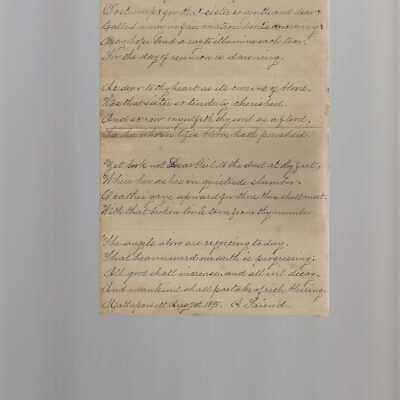 that sister so worth and dear
Called
May hope lend a ray to illumine each tear
For the day of reunion is dawning.
As dear to thy heart as its current of blood
Was that sister so tenderly cherished
And sorrow engulfeth thy soul as a flood,
For her whom life's bloom hath perished.
Yet look not Dear to the dust at thy feet,
Where her ashes in quietude slumber
But rather gaze upward for there thou shalt meet
With that broken link torn from thy number
The angels above are rejoicing to day,
That heavenward our earth is progressing;
All good shall increase, and all evil decay,
And mankind shall partake of rich blessing.
Mattapoisett Aug A Friend